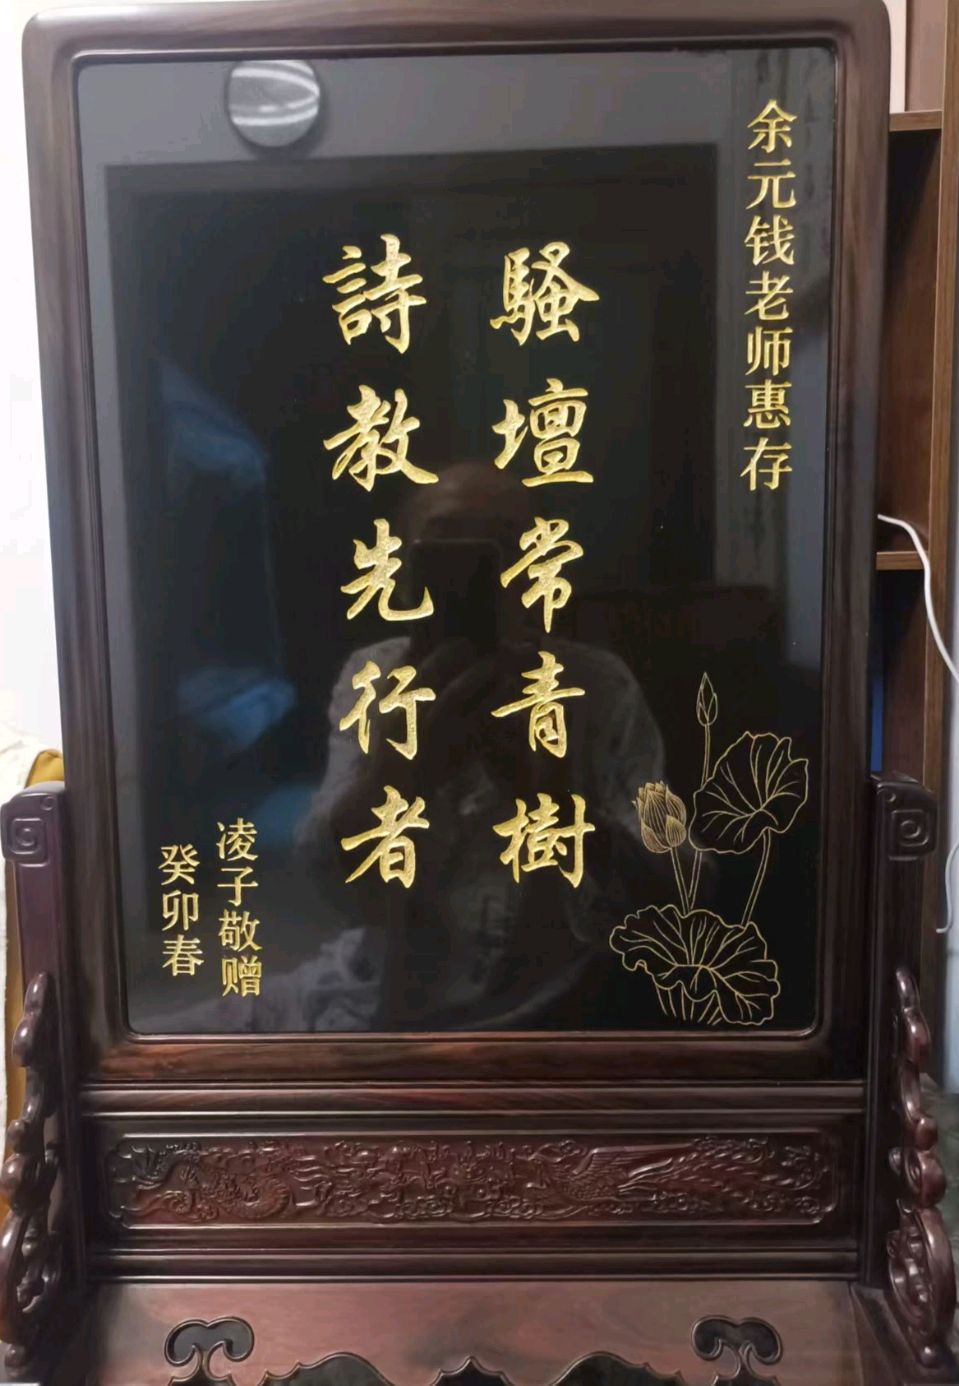 余元钱老师惠存
騷壇常青樹
詩教先行者
凌子敬赠
癸卯春